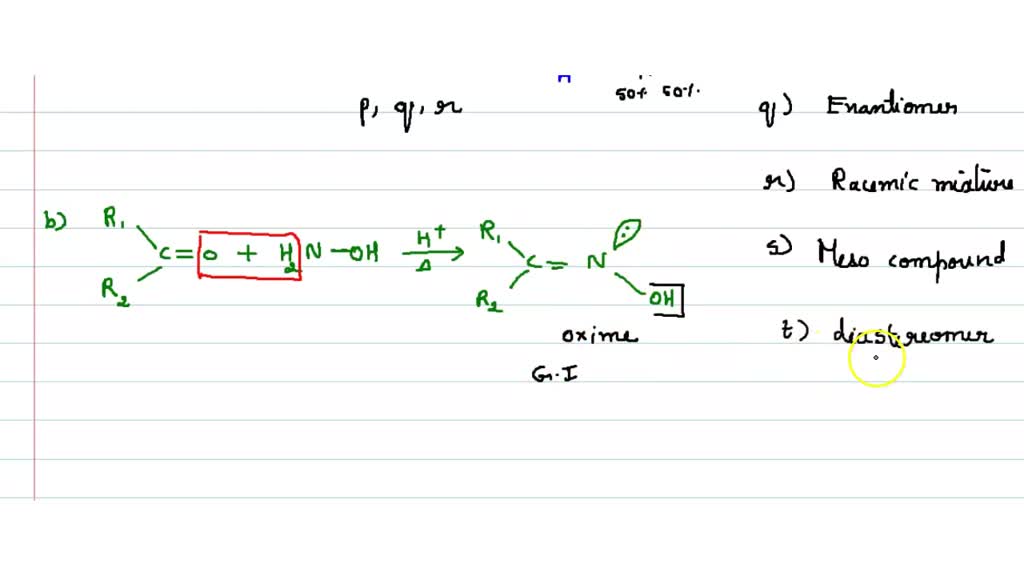 50% 50%.
p, q, r
q) Enantiomer
r) Racemic mixture
s) Meso compound
t) diastereomer
b) R₁ R₂ C = O + H₂N - OH H⁺ Δ → R₁ R₂ C = N : OH
oxime
G.I